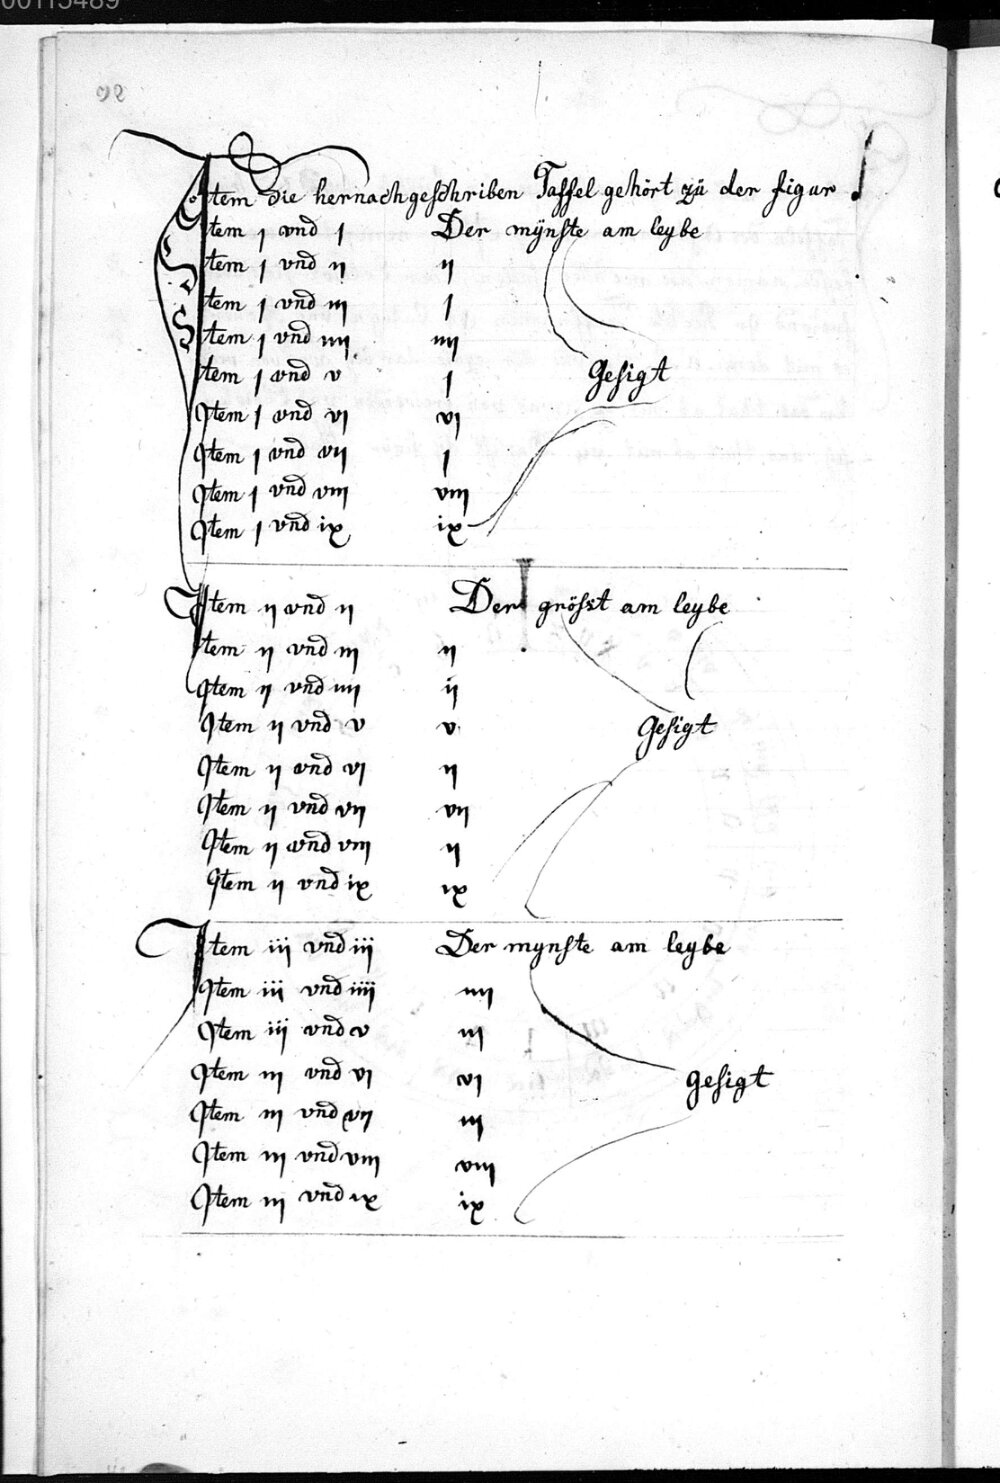 00115489
92
Item die hernachgeschriben Taffel gehört zü der figur
Item j vnd j Der mÿnste am leybe
Item j vnd ij ij
Item j vnd iij j
Item j vnd iiij iiij
Item j vnd v j
Gesigt
Item j vnd vj vj
Item j vnd vij j
Item j vnd viij viij
Item j vnd ix ix
Item ij vnd ij Der gröst am leybe
Item ij vnd iij ij
Item ij vnd iiij ij
Item ij vnd v v
Gesigt
Item ij vnd vj ij
Item ij vnd vij vij
Item ij vnd viij ij
Item ij vnd ix ix
Item iij vnd iij Der mynste am leybe
Item iij vnd iiij iiij
Item iij vnd v iij
Item iij vnd vj vj
gesigt
Item iij vnd vij iij
Item iij vnd viij viij
Item iij vnd ix ix